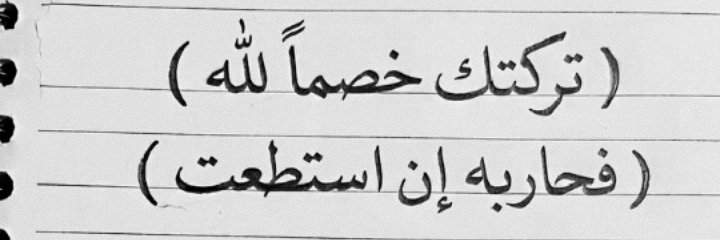 ( تركتك خصماً لله )
( فحاربه إن استطعت )